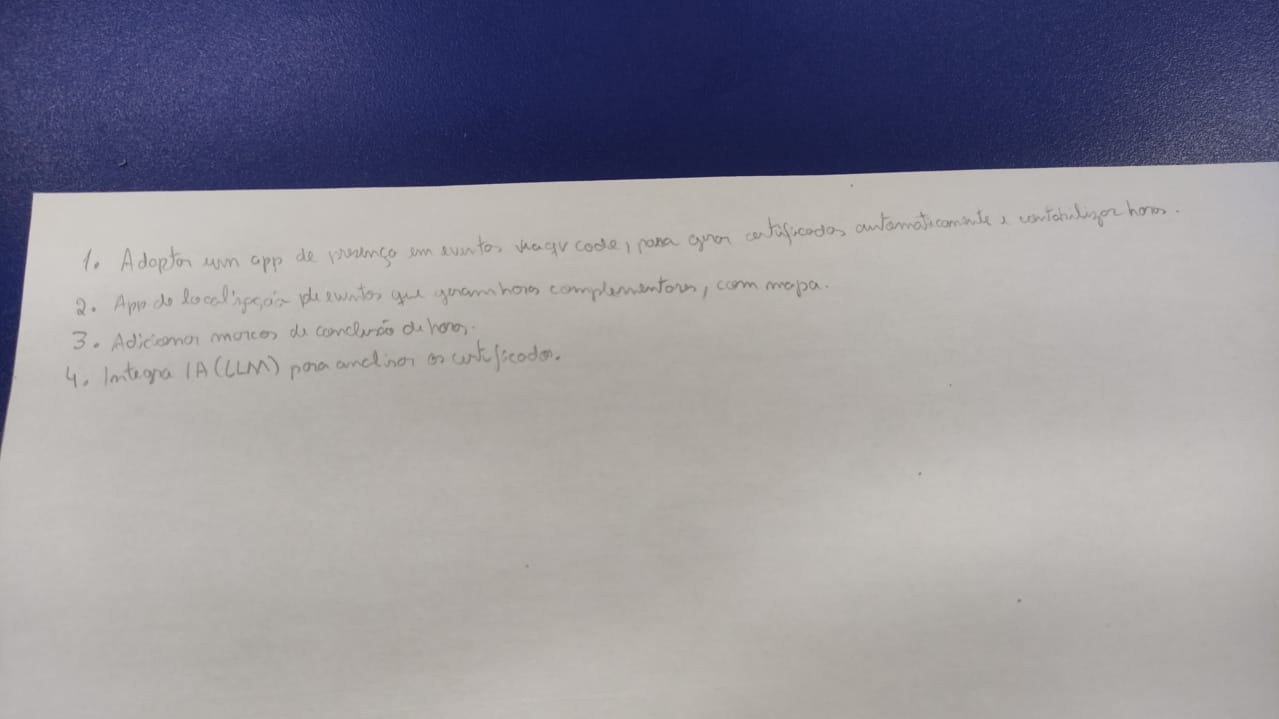 1. Adaptar um app de presença em eventos via qr code, para gerar certificados automaticamente e contabilizar horas.
2. App de localização de eventos que geram horas complementares, com mapa.
3. Adicionar marcos de conclusão de horas.
4. Integra IA (LLM) para analisar os certificados.